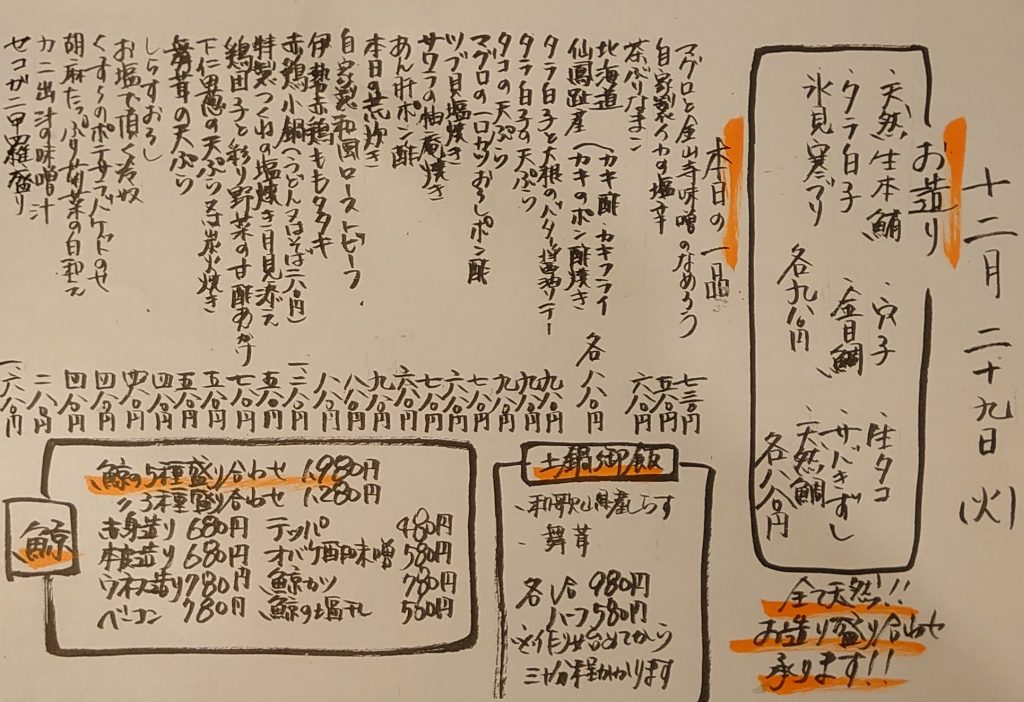 十二月二十九日(火)
お造り
天然生本鮪 穴子 生タコ
タラ白子 金目鯛 サバきずし
氷見寒ブリ 天然鯛
各九八〇円 各八八〇円
全て天然!!
お造り盛り合わせ
承ります!!
本日の一品
マグロと金山寺味噌のなめろう 七三〇円
自家製イカの塩辛 五八〇円
茶ぶりなまこ 六八〇円
北海道 (カキ酢・カキフライ
仙鳳趾産 (カキのポン酢焼き 各八八〇円
タラ白子と大根のバター醤油ソテー 九八〇円
タラ白子の天ぷら 九八〇円
タコの天ぷら 九八〇円
マグロの一口カツおろしポン酢 七八〇円
ツブ貝塩焼き 六八〇円
サワラの柚庵焼き 七八〇円
あん肝ポン酢 六八〇円
本日の荒炊き 九八〇円
自家製和風ローストビーフ 八八〇円
伊勢赤鶏ももタタキ 八八〇円
赤鶏小鍋(うどん又はそば二八〇円) 一、二八〇円
特製つくねの塩焼き月見添え 五八〇円
鶏団子と彩り野菜の甘酢あんかけ 七八〇円
下仁田葱の天ぷら又は炭火焼き 五八〇円
舞茸の天ぷら 五八〇円
しらすおろし 四八〇円
お塩で頂く冷奴 四八〇円
くずし らのポテサラバケットのせ 四八〇円
胡麻たっぷり菊菜の白和え 四八〇円
カニ出汁の味噌汁 二八〇円
セコガニ甲羅盛り 一、六八〇円
土鍋御飯
・和歌山県産しらす
・舞茸
各1合 980円
ハーフ580円
※作り始めてから
三十分程かかります
鯨
鯨の5種盛り合わせ 1,980円
〃3種盛り合わせ 1,280円
赤身造り 680円 テッパ 480円
本皮造り 680円 オバケ酢味噌 580円
ウネス造り 780円 鯨カツ 780円
ベーコン 780円 鯨の塩干し 500円